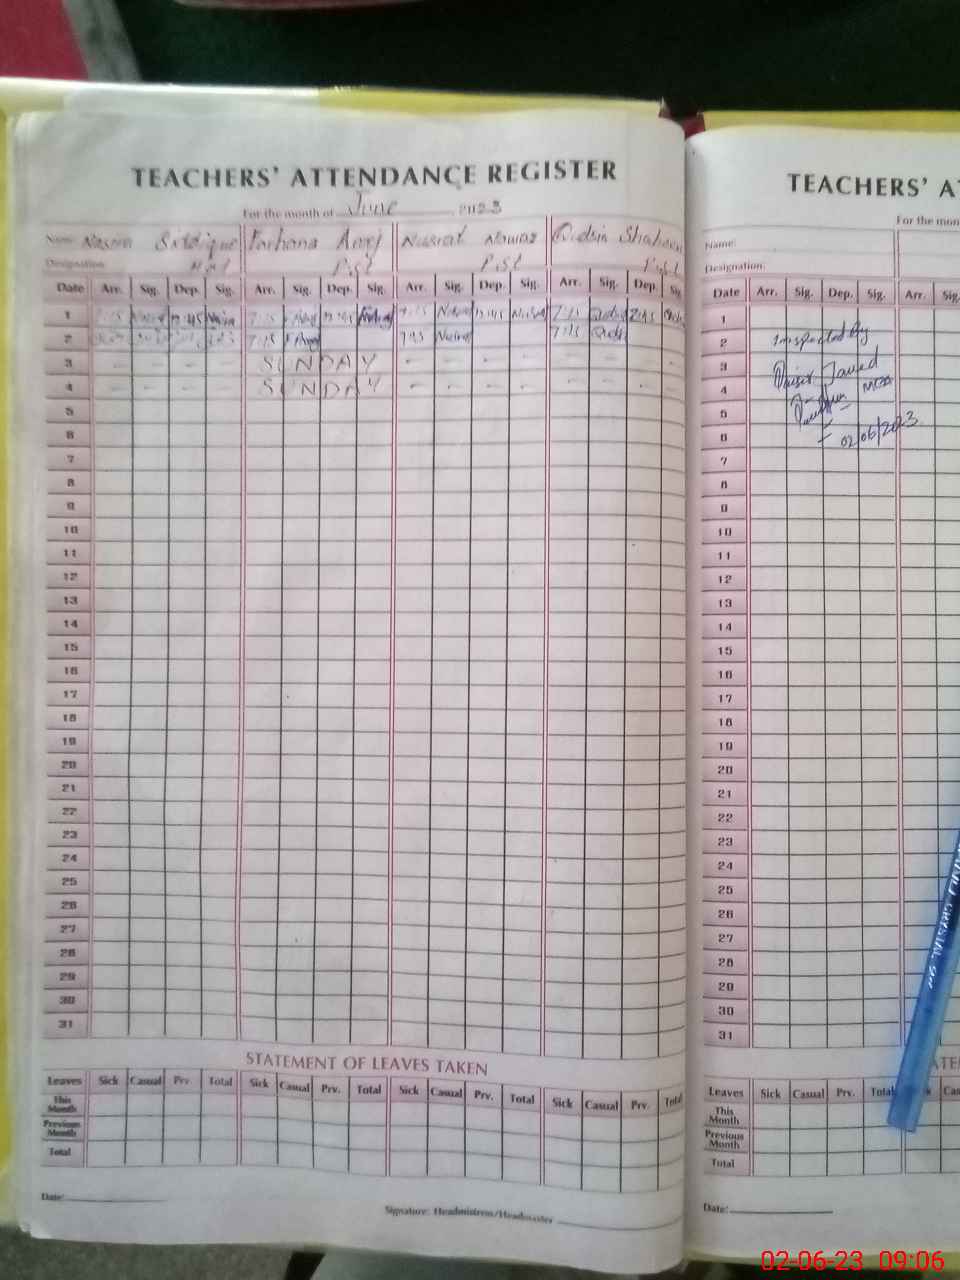 TEACHERS' ATTENDANCE REGISTER
For the month of June, 2023
Name: Nasira Siddique Farhana Areej Nusrat Nawaz Qudsia Shaheen
Designation: Hd.t P.s.t P.s.t P.s.t
Date Arr. Sig. Dep. Sig. Arr. Sig. Dep. Sig. Arr. Sig. Dep. Sig. Arr. Sig. Dep. Sig.
1 7:15 7:15 7:15 7:15
2 7:15 7:15
3 SUNDAY
4 SUNDAY
5
6
7
8
9
10
11
12
13
14
15
16
17
18
19
20
21
22
23
24
25
26
27
28
29
30
31
STATEMENT OF LEAVES TAKEN
Leaves Sick Casual Prv. Total Sick Casual Prv. Total Sick Casual Prv. Total Sick Casual Prv. Total
This Month
Previous Month
Total
Date:
Signature: Headmistress/Headmaster
TEACHERS' AT
For the mon
Name:
Designation:
Date Arr. Sig. Dep. Sig. Arr. Sig.
1
2 Inspected By
3 Javed
4 MEA
5
6 02/06/2023
7
8
9
10
11
12
13
14
15
16
17
18
19
20
21
22
23
24
25
26
27
28
29
30
31
Leaves Sick Casual Prv. Total
This Month
Previous Month
Total
Date:
02-06-23 09:06